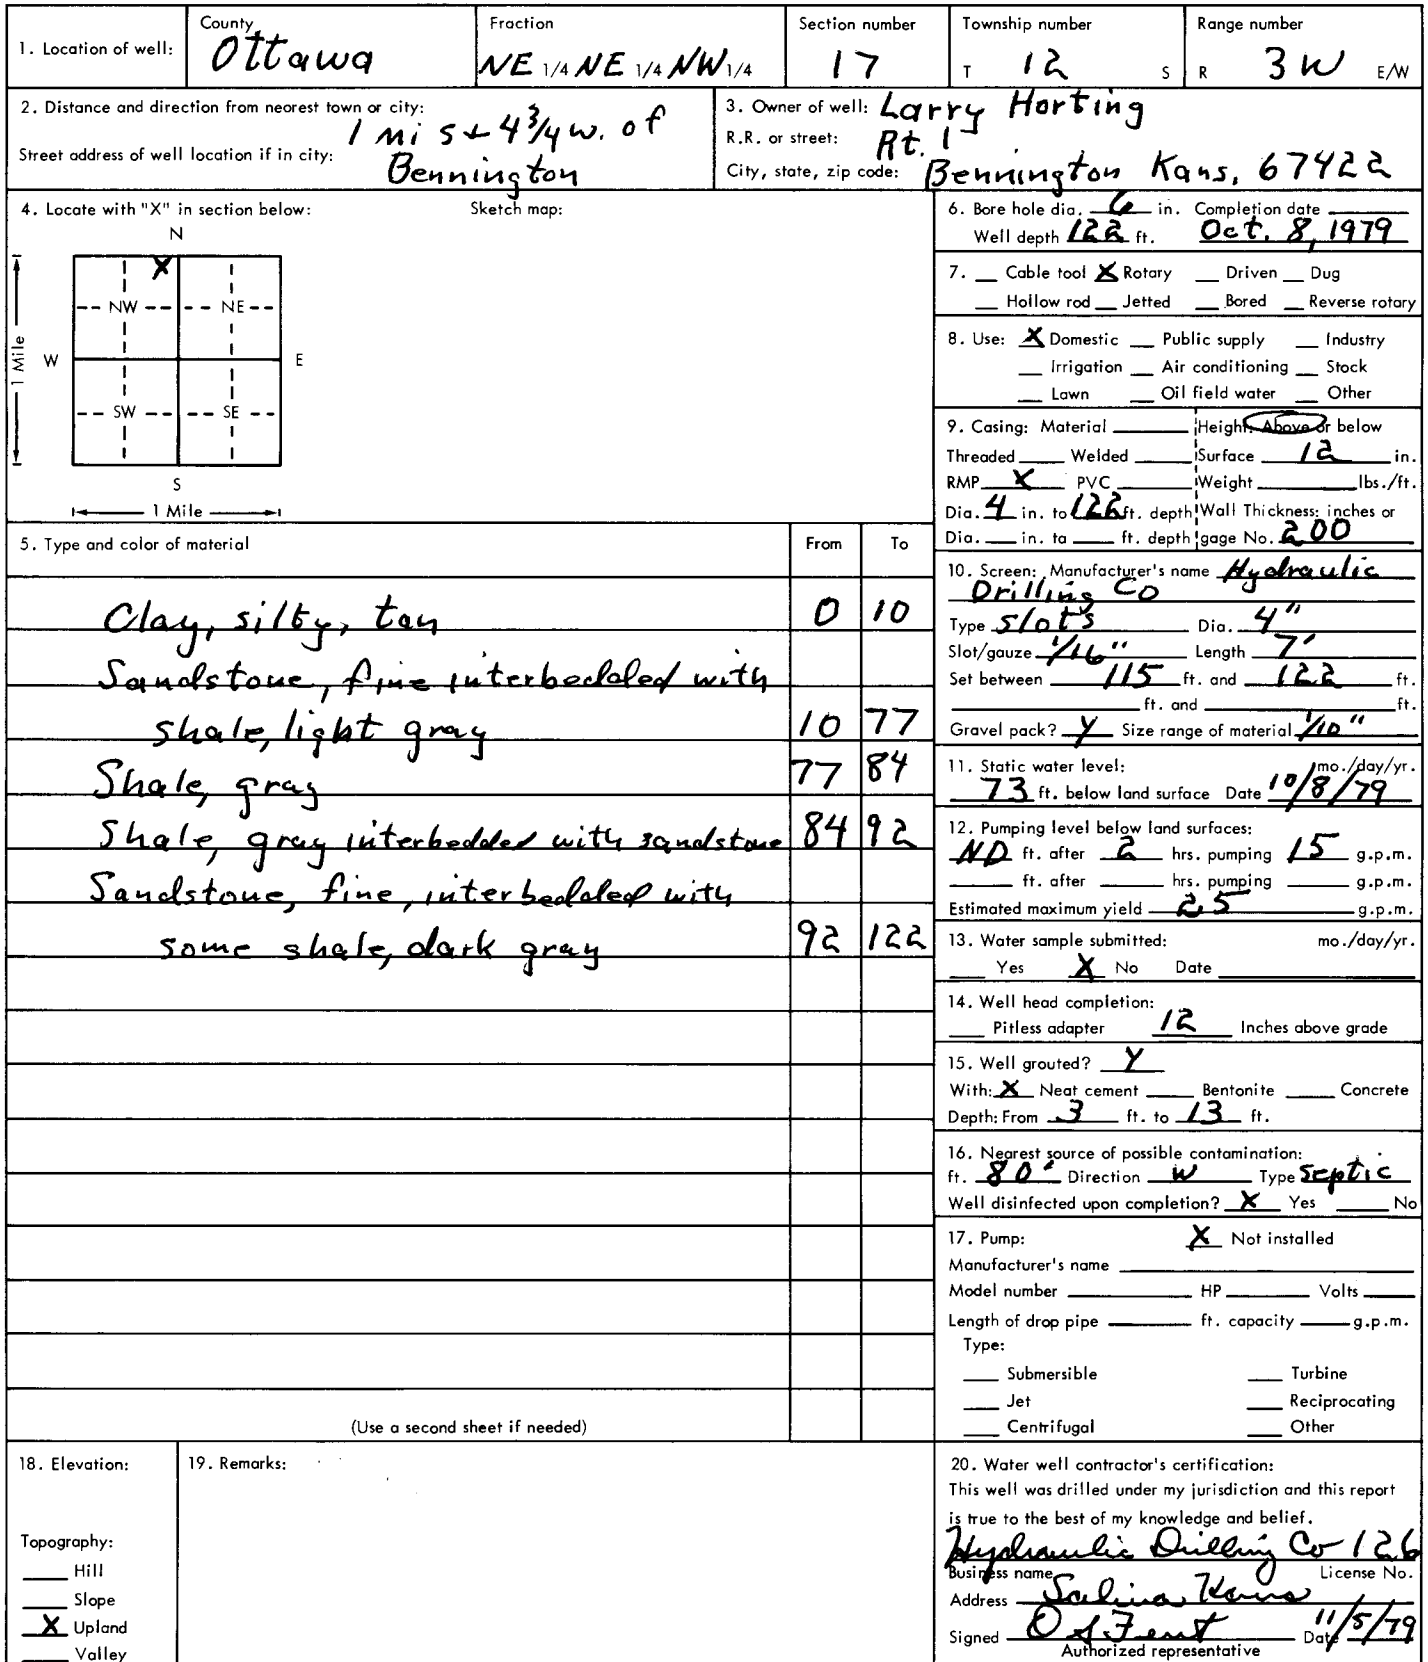 1. Location of well: County Ottawa Fraction NE 1/4 NE 1/4 NW 1/4 Section number 17 Township number T 12 S Range number R 3 W E/W
2. Distance and direction from nearest town or city: 1 mi S + 4 3/4 w. of
Street address of well location if in city: Bennington
3. Owner of well: Larry Horting
R.R. or street: Rt. 1
City, state, zip code: Bennington Kans, 67422
4. Locate with "X" in section below: Sketch map:
N
X
NW NE
W E
1 Mile
SW SE
S
1 Mile
5. Type and color of material From To
Clay, silty, tan 0 10
Sandstone, fine interbedded with
shale, light gray 10 77
Shale, gray 77 84
Shale, gray interbedded with sandstone 84 92
Sandstone, fine, interbedded with
some shale, dark gray 92 122
(Use a second sheet if needed)
6. Bore hole dia. 6 in. Completion date
Well depth 122 ft. Oct. 8, 1979
7. __ Cable tool X Rotary __ Driven __ Dug
__ Hollow rod __ Jetted __ Bored __ Reverse rotary
8. Use: X Domestic __ Public supply __ Industry
__ Irrigation __ Air conditioning __ Stock
__ Lawn __ Oil field water __ Other
9. Casing: Material ____ Height: Above or below
Threaded ____ Welded ____ Surface 12 in.
RMP X PVC ____ Weight ____ lbs./ft.
Dia. 4 in. to 122 ft. depth Wall Thickness: inches or
Dia. __ in. to __ ft. depth gage No. 200
10. Screen: Manufacturer's name Hydraulic
Drilling Co
Type slots Dia. 4"
Slot/gauze 1/16" Length 7'
Set between 115 ft. and 122 ft.
____ ft. and ____ ft.
Gravel pack? Y Size range of material 1/10"
11. Static water level: mo./day/yr.
73 ft. below land surface Date 10/8/79
12. Pumping level below land surfaces:
ND ft. after 2 hrs. pumping 15 g.p.m.
____ ft. after ____ hrs. pumping ____ g.p.m.
Estimated maximum yield 25 g.p.m.
13. Water sample submitted: mo./day/yr.
__ Yes X No Date ____
14. Well head completion:
__ Pitless adapter 12 Inches above grade
15. Well grouted? Y
With: X Neat cement ____ Bentonite ____ Concrete
Depth: From 3 ft. to 13 ft.
16. Nearest source of possible contamination:
ft. 80' Direction W Type septic
Well disinfected upon completion? X Yes ____ No
17. Pump: X Not installed
Manufacturer's name ____
Model number ____ HP ____ Volts ____
Length of drop pipe ____ ft. capacity ____ g.p.m.
Type:
__ Submersible __ Turbine
__ Jet __ Reciprocating
__ Centrifugal __ Other
18. Elevation:
Topography:
__ Hill
__ Slope
X Upland
__ Valley
19. Remarks:
20. Water well contractor's certification:
This well was drilled under my jurisdiction and this report
is true to the best of my knowledge and belief.
Hydraulic Drilling Co 126
Business name License No.
Address Salina Kans
Signed O S Fent Date 11/5/79
Authorized representative